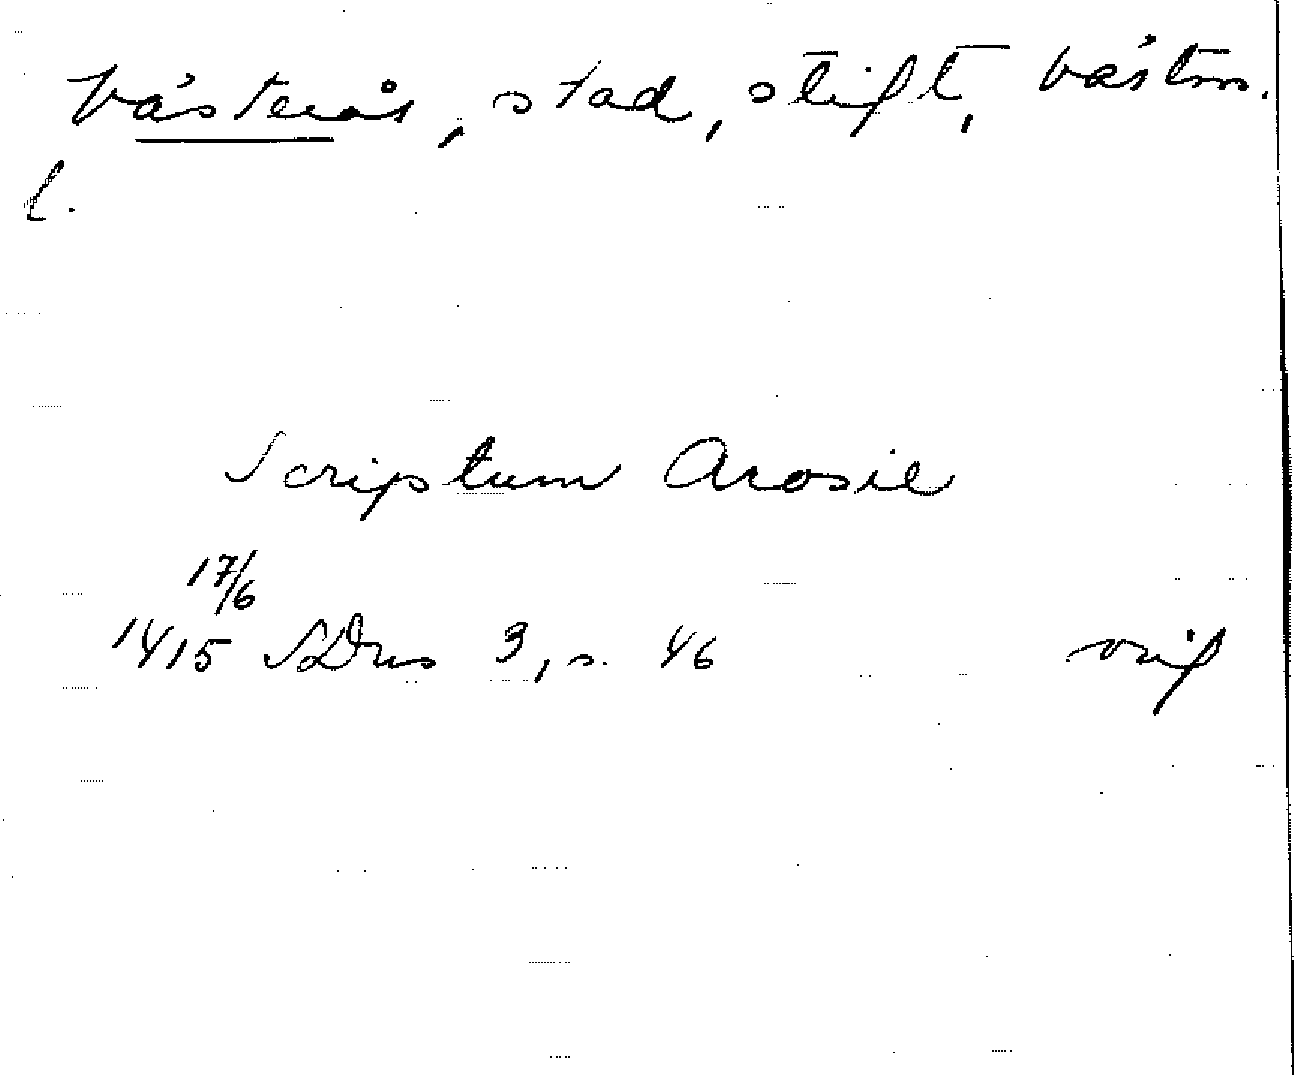 Västerås, stad, stift, Västm.
l.
Scriptum Arosie
17/6
1415 SDns 3, s. 46 orig